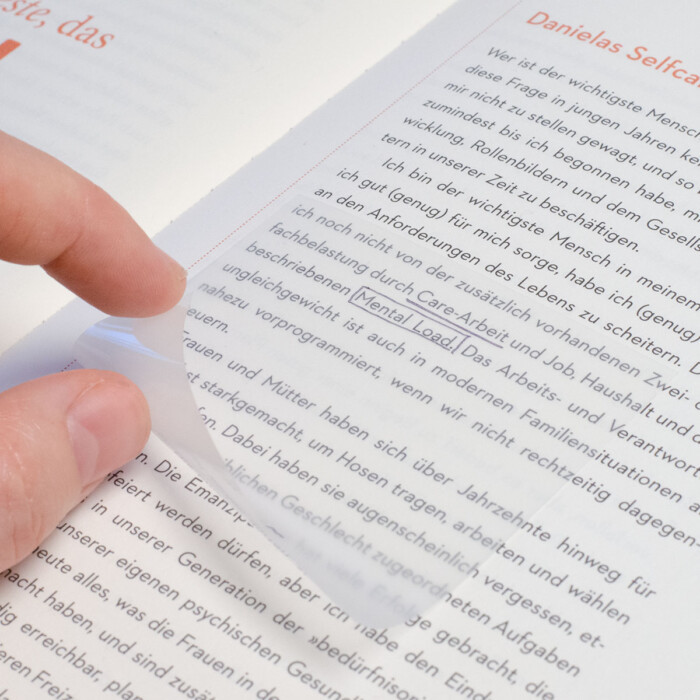 ste, das
Danielas Selfca
Wer ist der wichtigste Mensc
diese Frage in jungen Jahren ke
mir nicht zu stellen gewagt, und so
zumindest bis ich begonnen habe, m
wicklung, Rollenbildern und dem Gesells
tern in unserer Zeit zu beschäftigen.
Ich bin der wichtigste Mensch in meinem
ich gut (genug) für mich sorge, habe ich (genug)
an den Anforderungen des Lebens zu scheitern. D
ich noch nicht von der zusätzlich vorhandenen Zwei-
fachbelastung durch Care-Arbeit und Job, Haushalt und
beschriebenen Mental Load. Das Arbeits- und Verantwor
ungleichgewicht ist auch in modernen Familiensituationen a
nahezu vorprogrammiert, wenn wir nicht rechtzeitig dagegen-
euern.
rauen und Mütter haben sich über Jahrzehnte hinweg für
st starkgemacht, um Hosen tragen, arbeiten und wählen
fen. Dabei haben sie augenscheinlich vergessen, et-
blichen Geschlecht zugeordneten Aufgaben
Erfolge gebracht, die
n. Die Emanzip
ifeiert werden dürfen, aber ich habe den Ein
in unserer Generation der »bedürfnisor
unserer eigenen psychischen Gesun
heute alles, was die Frauen in de
macht haben, und sind zusä
dig erreichbar, plan
eren Freiz